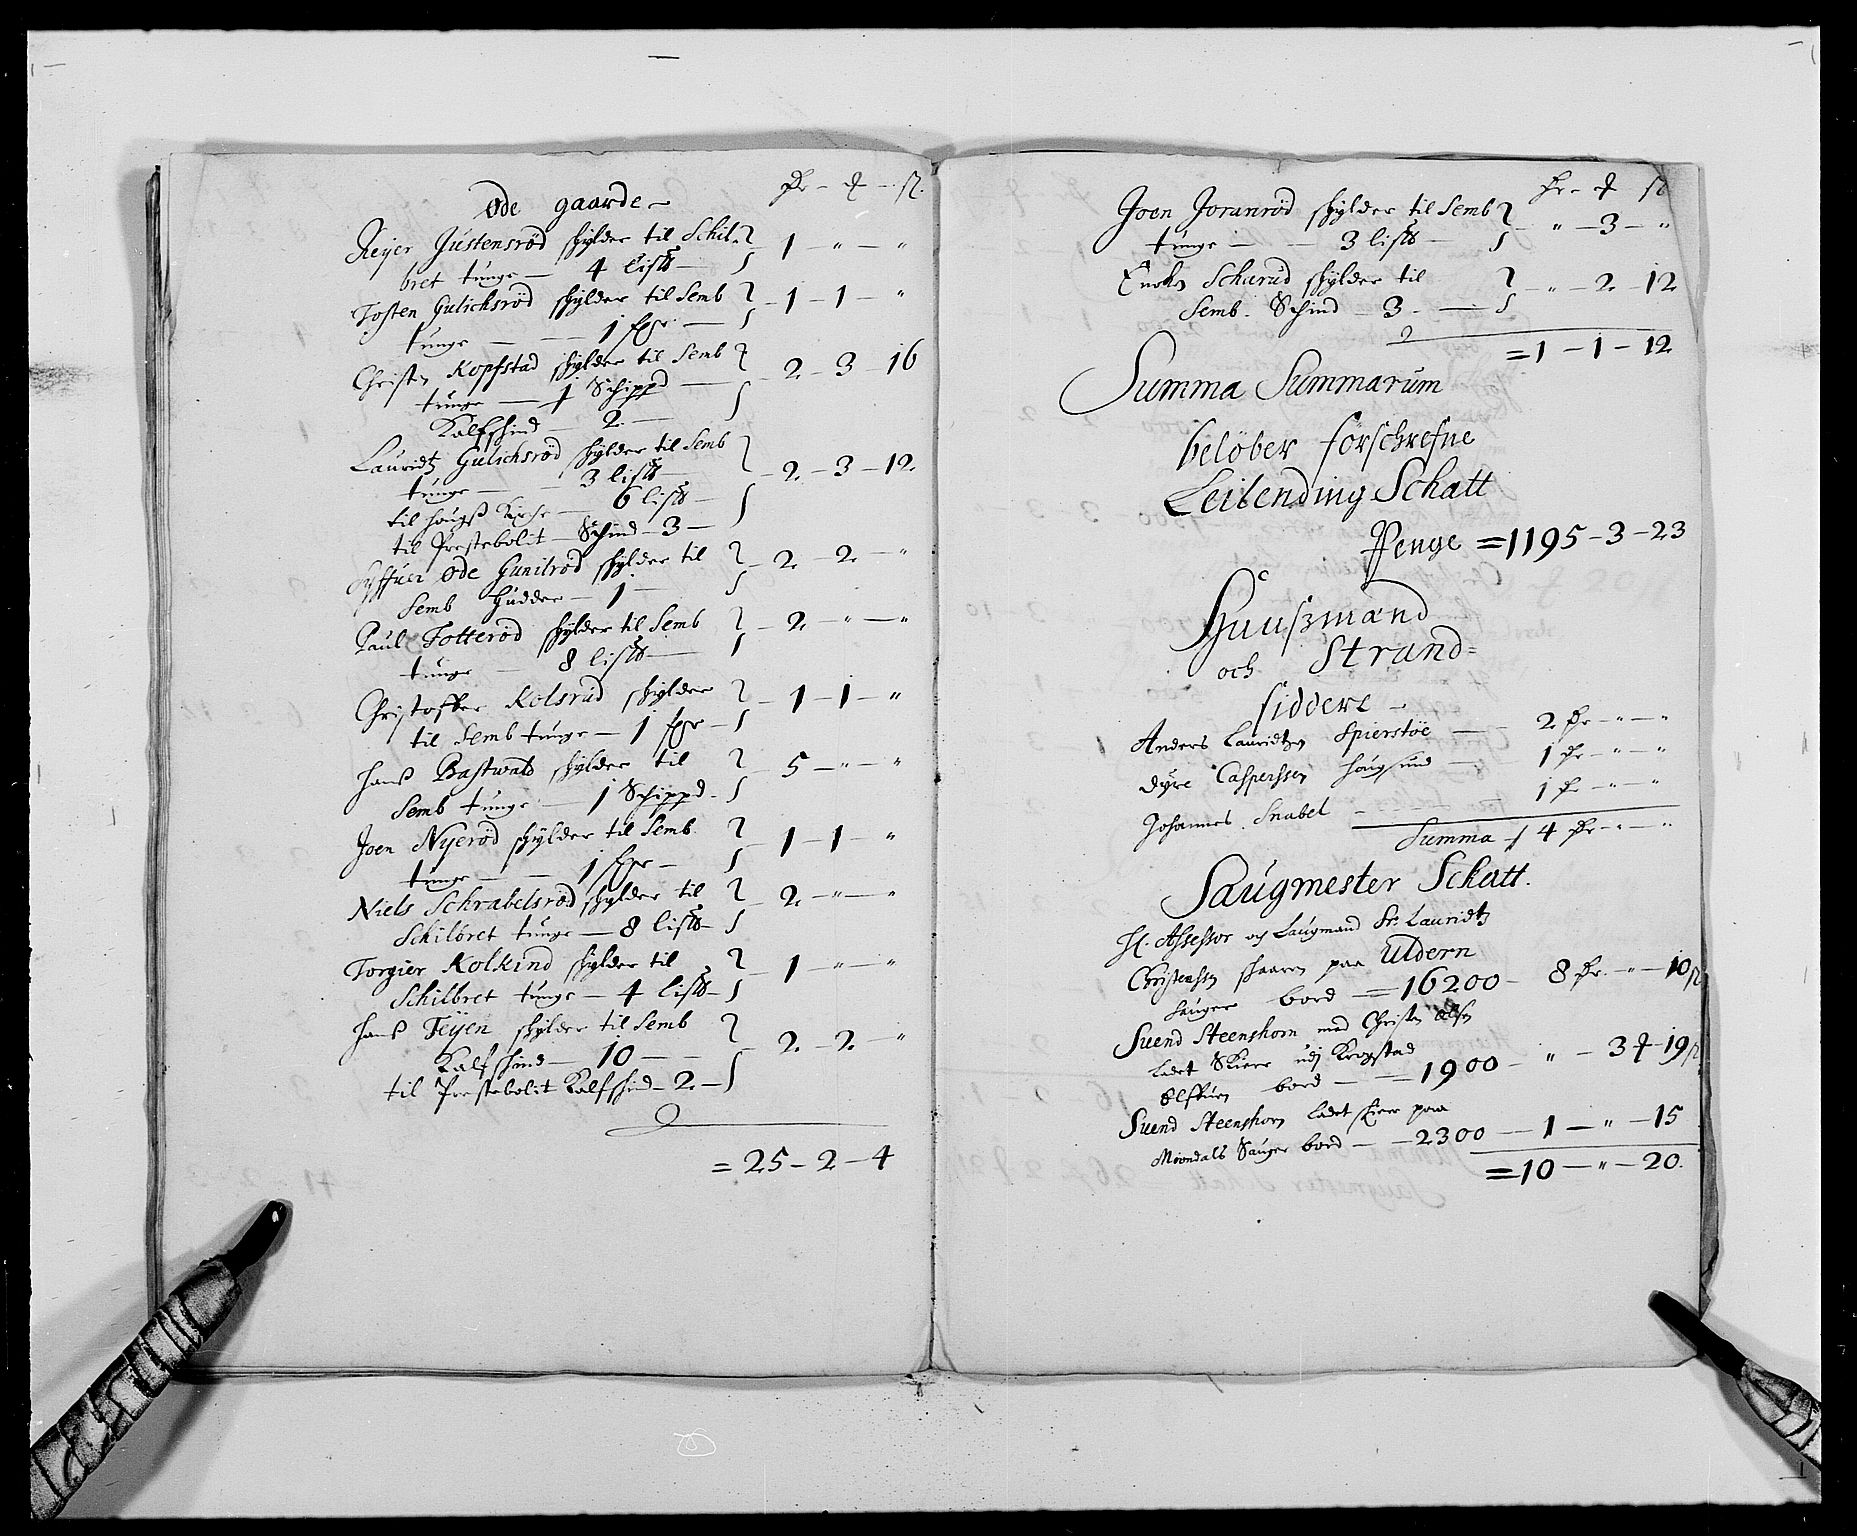 Øde gaarde – Rr – ₰ – ß.
Reyer Justensrød schylder til Schil-
bret tunge – 4 lis℔ – 1 – " – "
Tosten Gulichsrød schylder til Semb
tunge – 1 fgr – 1 – 1 – "
Christen Kopfstad schylder til Semb
tunge – 1 Schippd – 2 – 3 – 16
Kalfschind – 2 –
Lauridtz Gulichsrød schylder til Semb
tunge – 3 lis℔ – 2 – 3 – 12
til Hougs Kirche – 6 lis℔ –
til Prestebolit – Schind – 3 –
Øde Gunilrød schylder til
Semb Hudder – 1 – 2 – 2 – "
Paul Totterød schylder til Semb
tunge – 8 lis℔ – 2 – " – "
Christoffer Kolsrud schylder
til Semb tunge – 1 fgr – 1 – 1 – "
Hans Bastwald schylder til
Semb tunge – 1 Schippd – 5 – " – "
Joen Nyerød schylder til Semb
tunge – 1 fgr – 1 – 1 – "
Niels Schrabelsrød schylder til
Schilbret tunge – 8 lis℔ – 2 – " – "
Torgier Kolkind schylder til
Schilbret tunge – 4 lis℔ – 1 – " – "
Hans Teÿen schylder til Semb
Kalfschind – 10 – 2 – 2 – "
til Prestebolit Kalfschind – 2 –
= 25 – 2 – 4
Rr – ₰ ß
Joen Joranrød schylder til Semb
tunge – 3 lis℔ – " – 3 – "
Schurud schylder til
Semb. Schind – 3 – " – 2 – 12
= 1 – 1 – 12
Summa Summarum
beløber förschrefne
Leilending Schatt
Penge = 1195 – 3 – 23
Huuszmænd
och Strand=
siddere –
Anders Lauridtzen Spierstøe – 2 Rr – " – "
Dyre Casperssen Hougsund – 1 Rr – " – "
Johannes Snabel – 1 Rr – " – "
Summa – 4 Rr – " – "
Saugmester Schatt.
Hl. Assessor och Laugmand Sr. Lauridtz
Christenssen schaaren paa Uldern
Sauger bord = 16200 – 8 Rr. – " – 10 ß
Suend Steenshorn med Christen Olsen
ladet Skiere udj Krogstad
Elfven bord – = 1900 – " – 3 ₰ – 19 ß
Suend Steenshorn ladet schier paa
Miøndals Sauger bord – 2300 – 1 – " – 15
= 10 – " – 20.